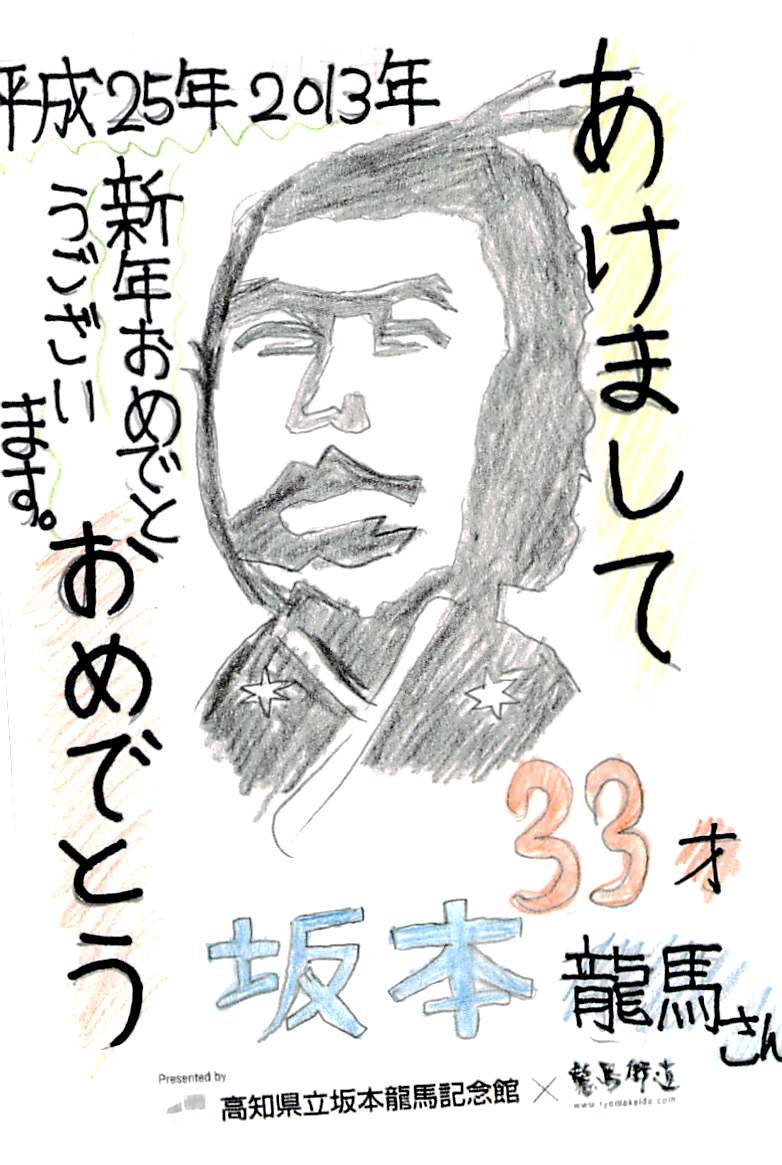 平成25年2013年
あけまして
おめでとう
新年おめでと
うござい
ます。
33才
坂本龍馬さん
Presented by
高知県立坂本龍馬記念館×龍馬街道
www.ryomakaido.com